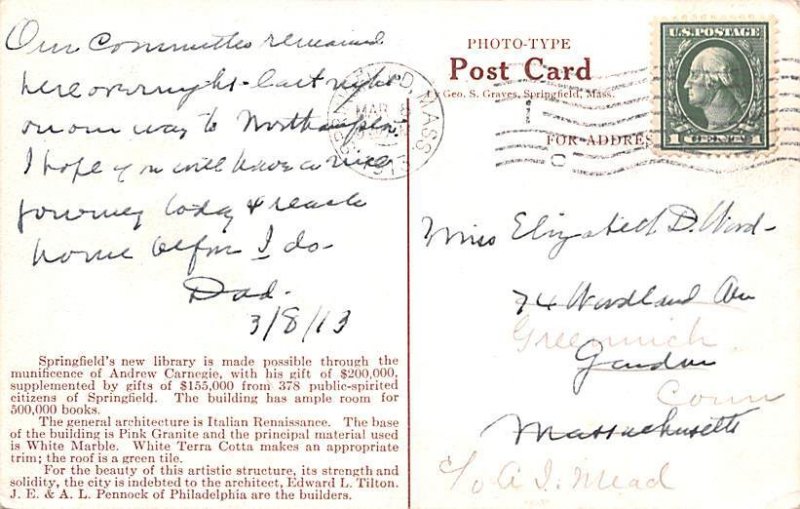 Our Committee remained
here overnight last night
on our way to Northampton.
I hope you will have a nice
journey today & reach
home before I do-
Dad.
3/8/13
Springfield's new library is made possible through the
munificence of Andrew Carnegie, with his gift of $200,000,
supplemented by gifts of $155,000 from 378 public-spirited
citizens of Springfield. The building has ample room for
500,000 books.
The general architecture is Italian Renaissance. The base
of the building is Pink Granite and the principal material used
is White Marble. White Terra Cotta makes an appropriate
trim; the roof is a green tile.
For the beauty of this artistic structure, its strength and
solidity, the city is indebted to the architect, Edward L. Tilton.
J. E. & A. L. Pennock of Philadelphia are the builders.
PHOTO-TYPE
Post Card
Geo. S. Graves, Springfield, Mass.
FOR ADDRESS
MASS.
MAR 8
1913
U.S. POSTAGE
1 CENT 1
Miss Elizabeth D. Word-
74 Woodland Ave
Greenwich
Gardner
Conn
Massachusetts
c/o A I. Mead